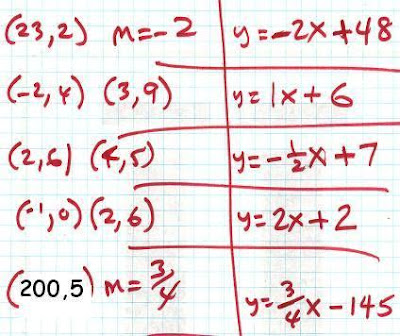 (23,2) m=-2 y=-2x+48
(-2,4) (3,9) y=1x+6
(2,6) (4,5) y=-½x+7
(-1,0) (2,6) y=2x+2
(200,5) m=3/4 y=3/4x-145